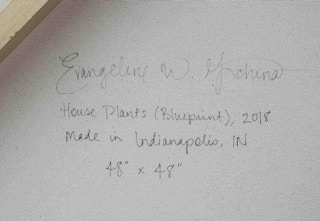 Evangeline W.
House Plants (Blueprint), 2018
Made in Indianapolis, IN
48" x 48"